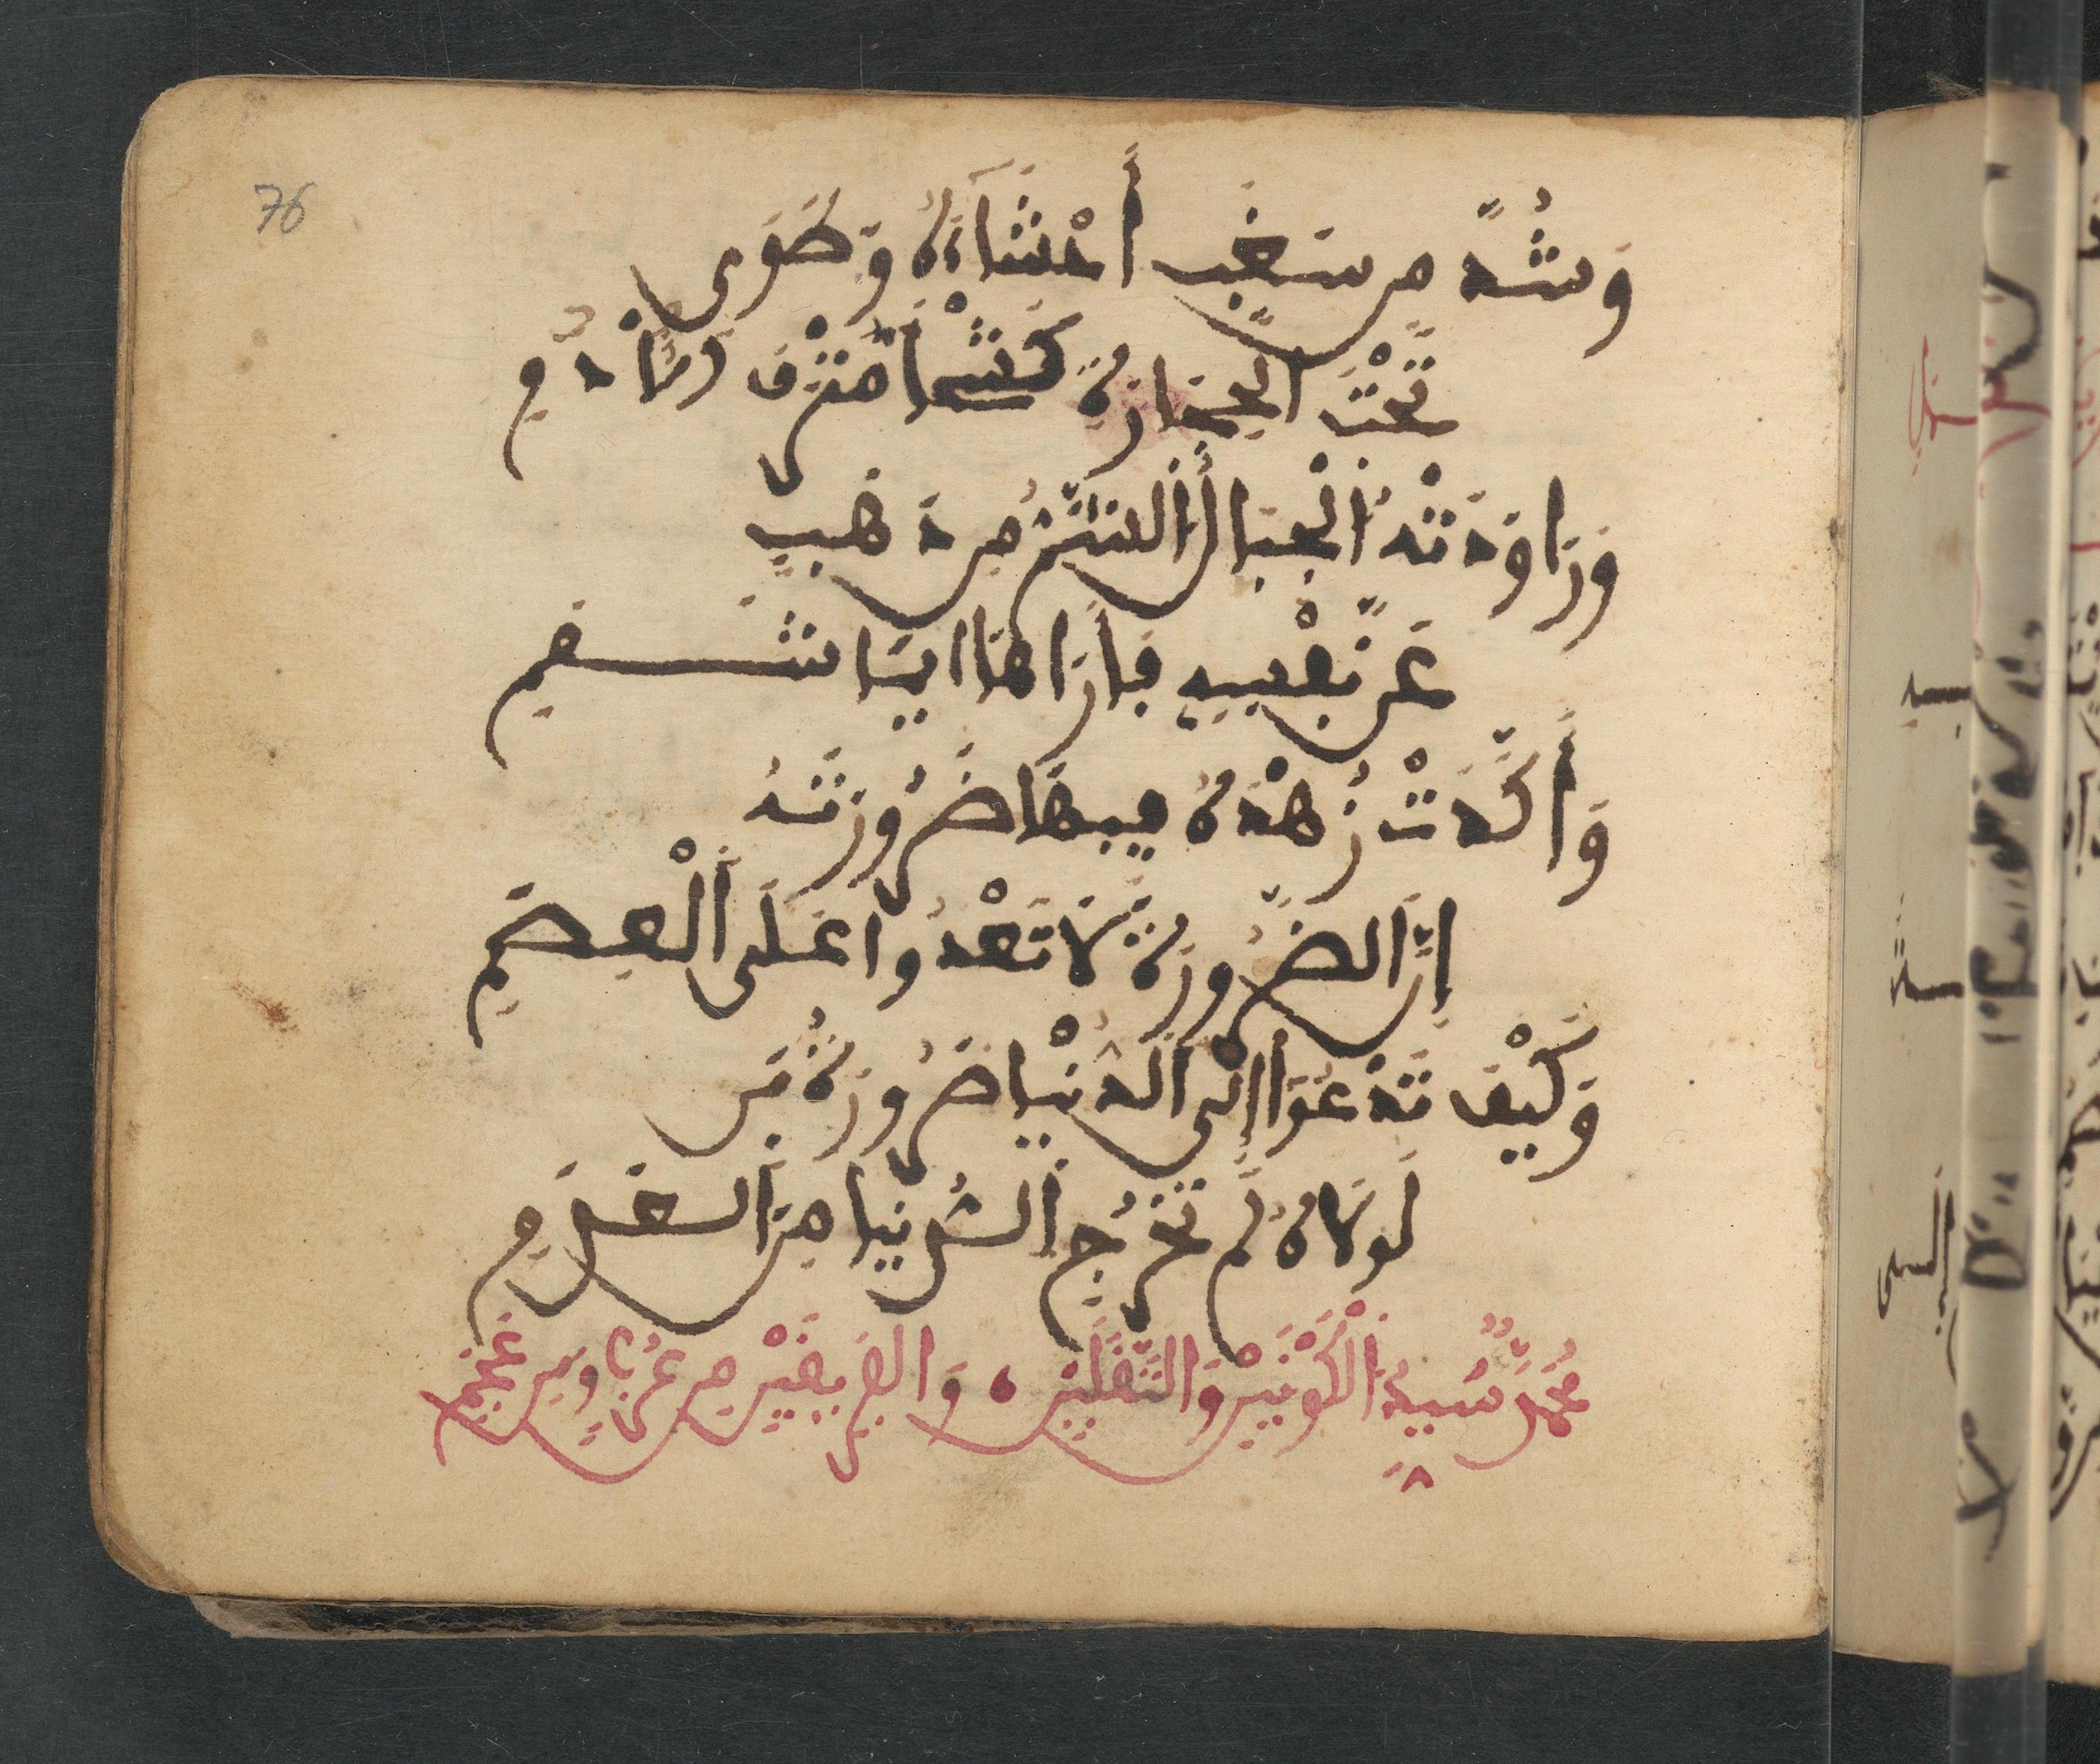 76
وَشُدَّ مِن سَغَبٍ أَحْشَاءَهُ وَطَوَى
تَحْتَ الْحِجَارَةِ كَشْحاً مُتْرَفَ الْأَدَمِ
وَرَاوَدَتْهُ الْجِبَالُ الشُّمُّ مِن ذَهَبٍ
عَن نَّفْسِهِ فَأَرَاهَا أَيَّمَا شَمَمِ
وَأَكَّدَتْ زُهْدَهُ فِيهَا ضَرُورَتُهُ
إِنَّ الضَّرُورَةَ لَا تَعْدُوا عَلَى الْعِصَمِ
وَكَيْفَ تَدْعُوا إِلَى الدُّنْيَا ضَرُورَةُ مَن
لَولَاهُ لَم تَخْرُجِ الدُّنْيَا مِنَ الْعَدَمِ
مُحَمَّدٌ سَيِّدُ الْكَوْنَيْنِ وَالثَّقَلَيْنِ ، وَالْفَرِيقَيْنِ مِن عُرْبٍ وَمِن عَجَمِ